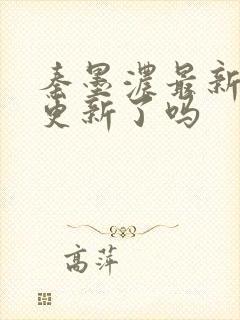 秦墨浓最新
更新了吗
高萍